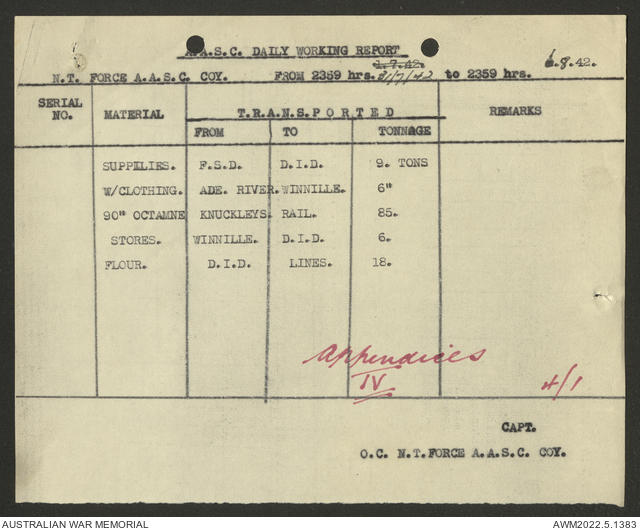 A.A.S.C. DAILY WORKING REPORT
N.T. FORCE A.A.S.C. COY. FROM 2359 hrs. 1.7.42. 31/7/42 to 2359 hrs. 1.8.42.
SERIAL NO. MATERIAL T.R.A.N.S.P O R T E D REMARKS
FROM TO TONNAGE
SUPPILIES. F.S.D. D.I.D. 9. TONS
W/CLOTHING. ADE. RIVER. WINNILLE. 6"
90" OCTAMNE KNUCKLEYS. RAIL. 85.
STORES. WINNILLE. D.I.D. 6.
FLOUR. D.I.D. LINES. 18.
Appendices
IV 4/1
CAPT.
O.C. N.T.FORCE A.A.S.C. COY.
AUSTRALIAN WAR MEMORIAL AWM2022.5.1383